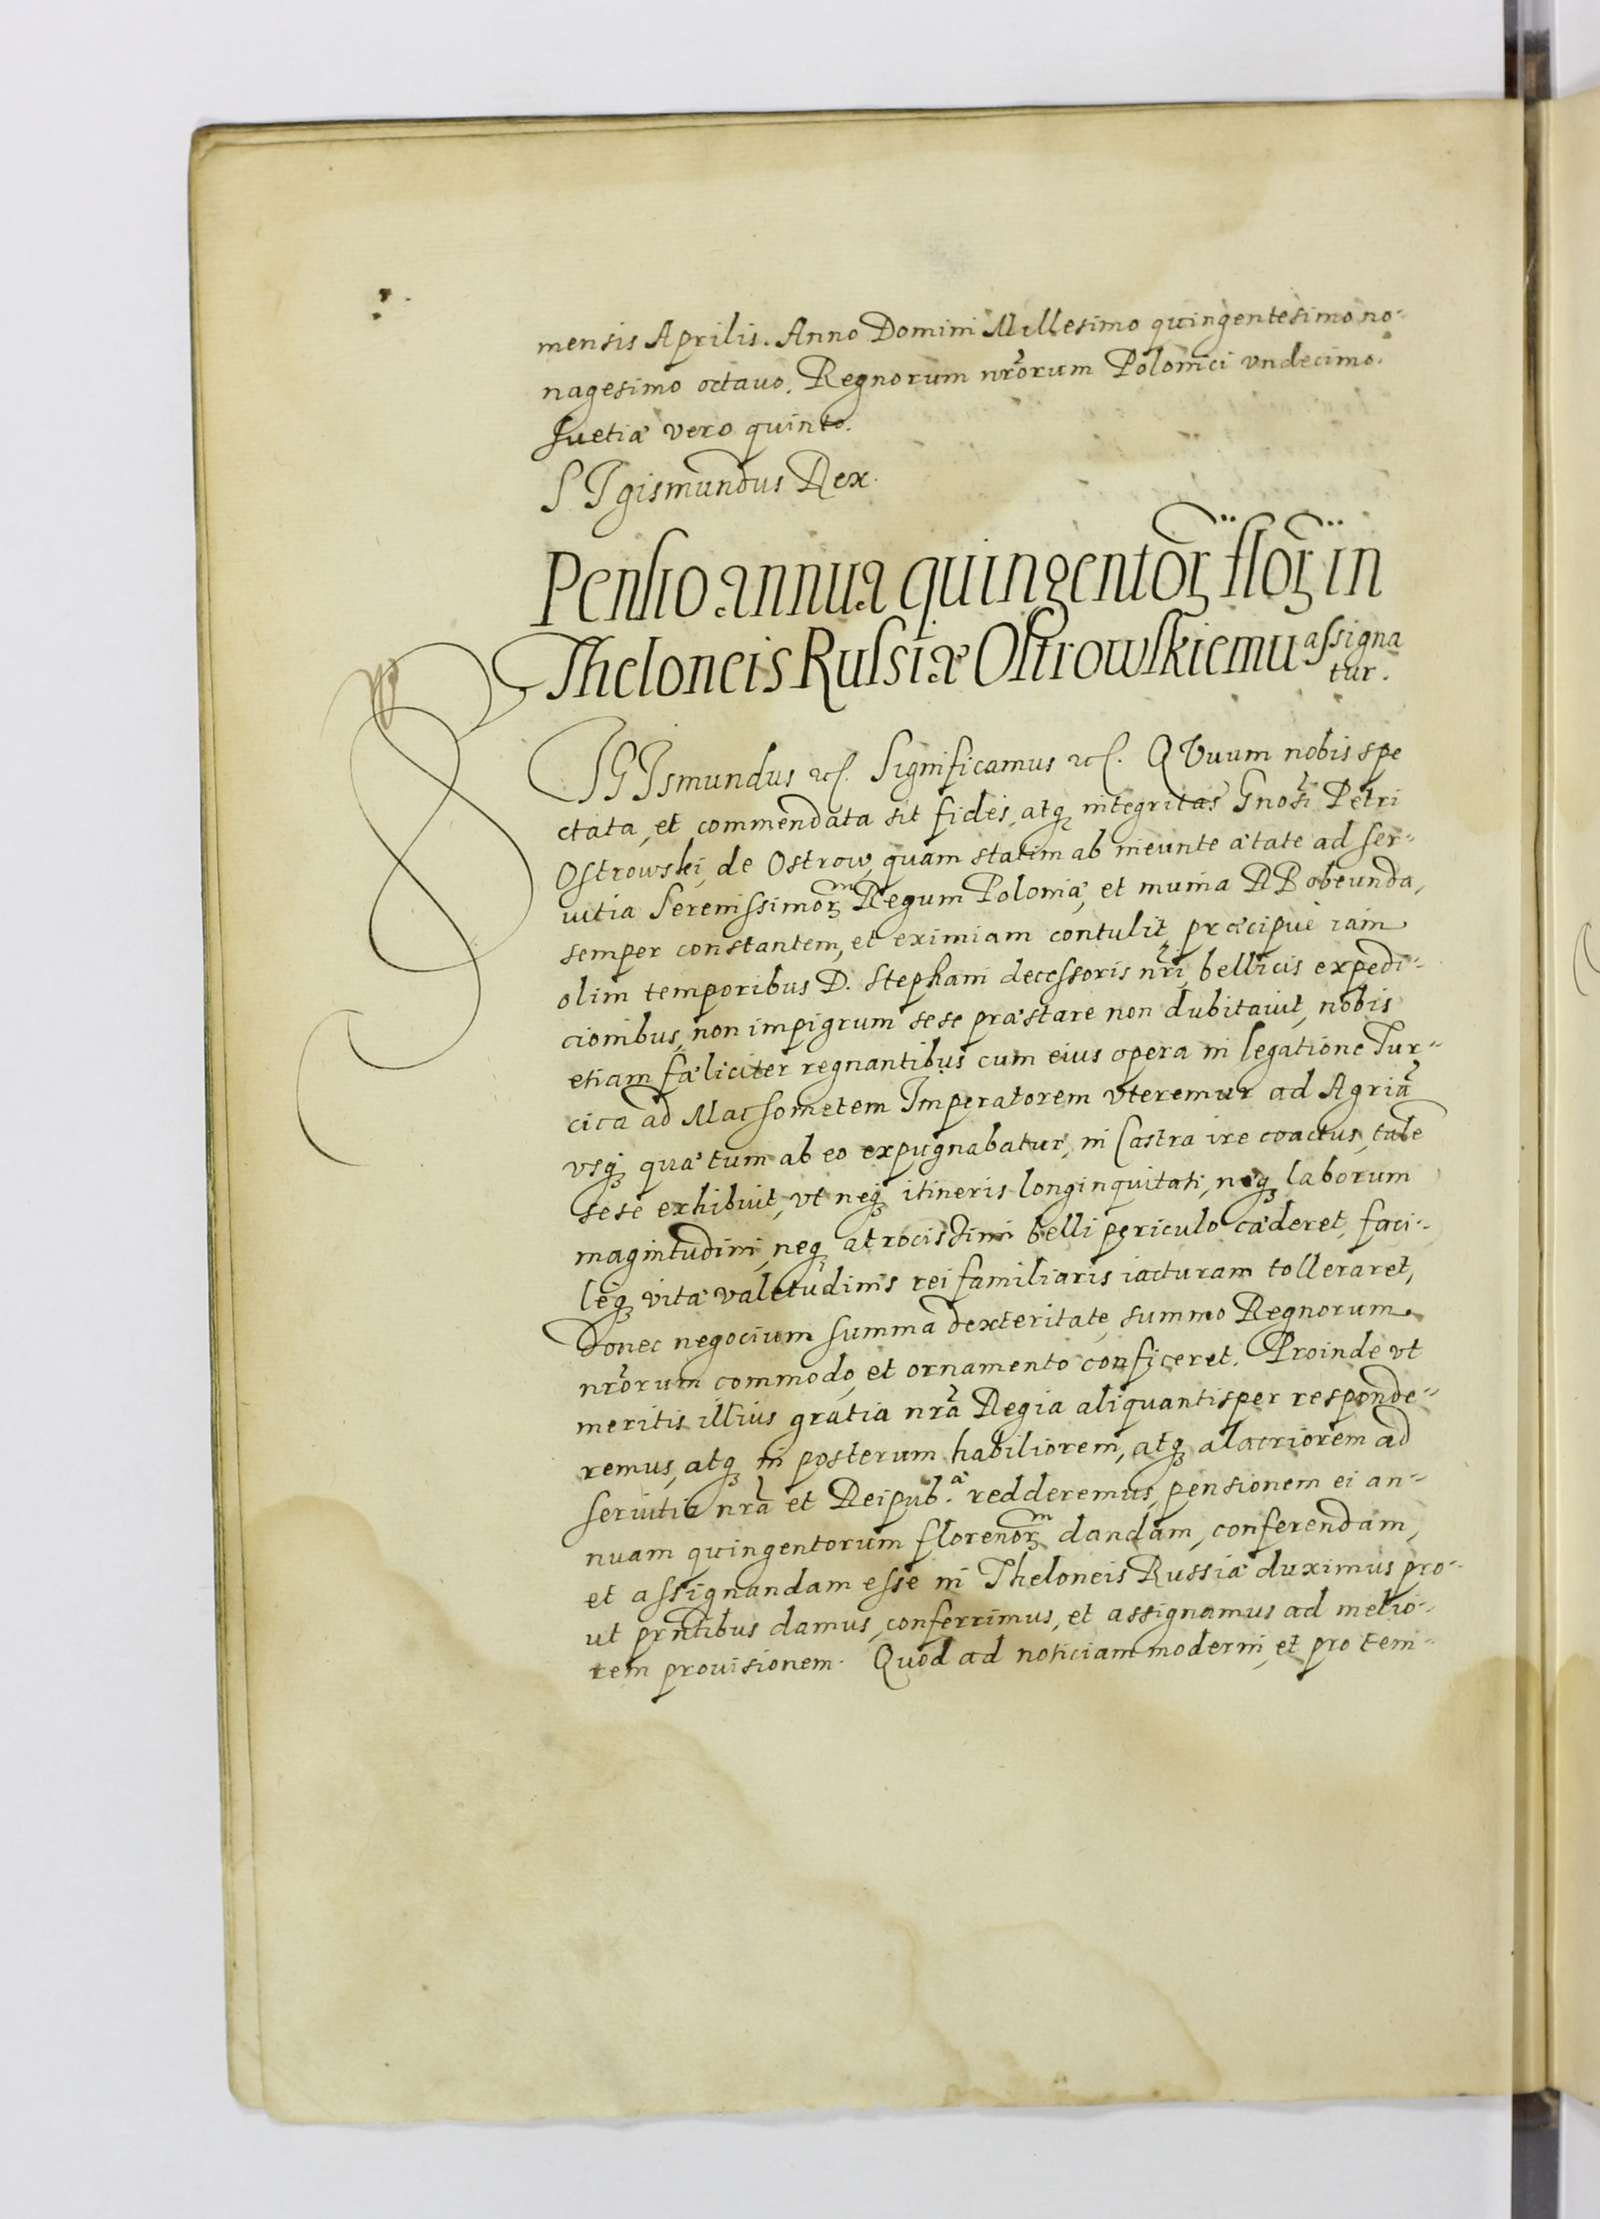 mensis Aprilis. Anno Domini Millesimo quingentesimo no-
nagesimo octauo. Regnorum nr̃orum Polonici vndecimo.
Suetiæ vero quinto.
SIgismundus Rex.
Pensio annua quingentorꝫ florꝫ in
Theloneis Russiæ Ostrowskiemu assigna
tur.
SIGIsmundus etc. Significamus etc. QVuum nobis spe
ctata, et commendata sit fides, atqꝫ integritas Gnosi Petri
Ostrowski, de Ostrow, quam statim ab ineunte ætate ad ser-
uitia Serenissimorꝫᵐ Regum Poloniæ, et munia RP obeunda,
semper constantem, et eximiam contulit, præcipuè iam
olim temporibus D. Stephani decessoris nr̃i, bellicis expedi-
cionibus, non impigrum sese præstare non dubitauit, nobis
etiam fæliciter regnantibus cum eius opera in legatione Tur-
cica ad Machometem Imperatorem vteremur ad Agriã
vsqꝫ quæ tum ab eo expugnabatur, in Castra ire coactus, tale
sese exhibuit, vt neqꝫ itineris longinquitati, neqꝫ laborum
magnitudini, neqꝫ atrocissimi belli periculo cæderet, faci-
leqꝫ vitæ valetudinis rei familiaris iacturam tolleraret,
Donec negocium summa dexteritate, summo Regnorum
nr̃orum commodo, et ornamento conficeret. Proinde vt
meritis illius gratia nr̃a Regia aliquantisper responde-
remus, atqꝫ in posterum habiliorem, atqꝫ alacriorem ad
seruitia nr̃a et Reipub.æ redderemus, pensionem ei an-
nuam quingentorum florenorꝫᵐ dandam, conferendam,
et assignandam esse in Theloneis Russiæ duximus pro-
ut prñtibus damus, conferrimus, et assignamus ad melio-
rem prouisionem. Quod ad noticiam moderni, et pro tem-